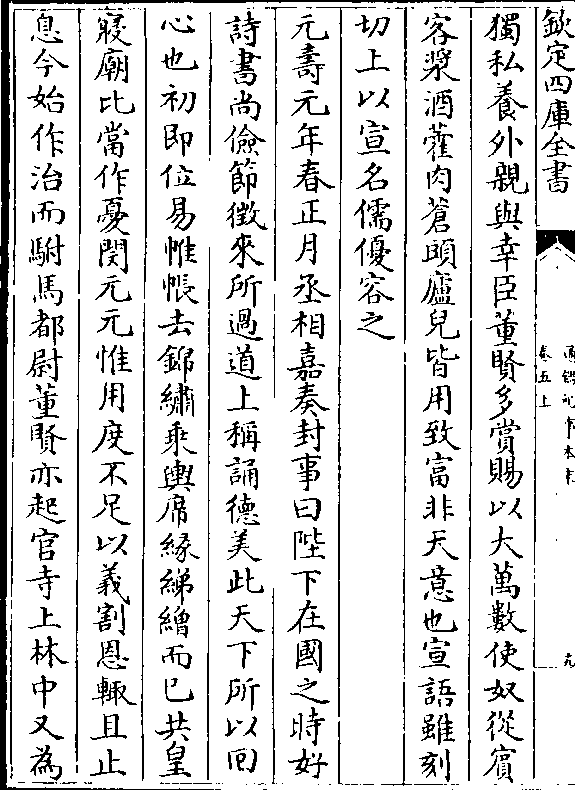 欽定四庫全書
通鑑紀事本末
卷五上
九
獨私養外親與幸臣董賢多賞賜以大萬數使奴從賔
客漿酒藿肉蒼頭廬兒皆用致富非天意也宣語雖刻
切上以宣名儒優容之
元壽元年春正月丞相嘉奏封事曰陛下在國之時好
詩書尚儉節徵來所過道上稱誦德美此天下所以囘
心也初即位易帷帳去錦繡乘輿席緣綈繒而已共皇
寢廟比當作憂閔元元惟用度不足以義割恩輙且止
息今始作治而駙馬都尉董賢亦起官寺上林中又為